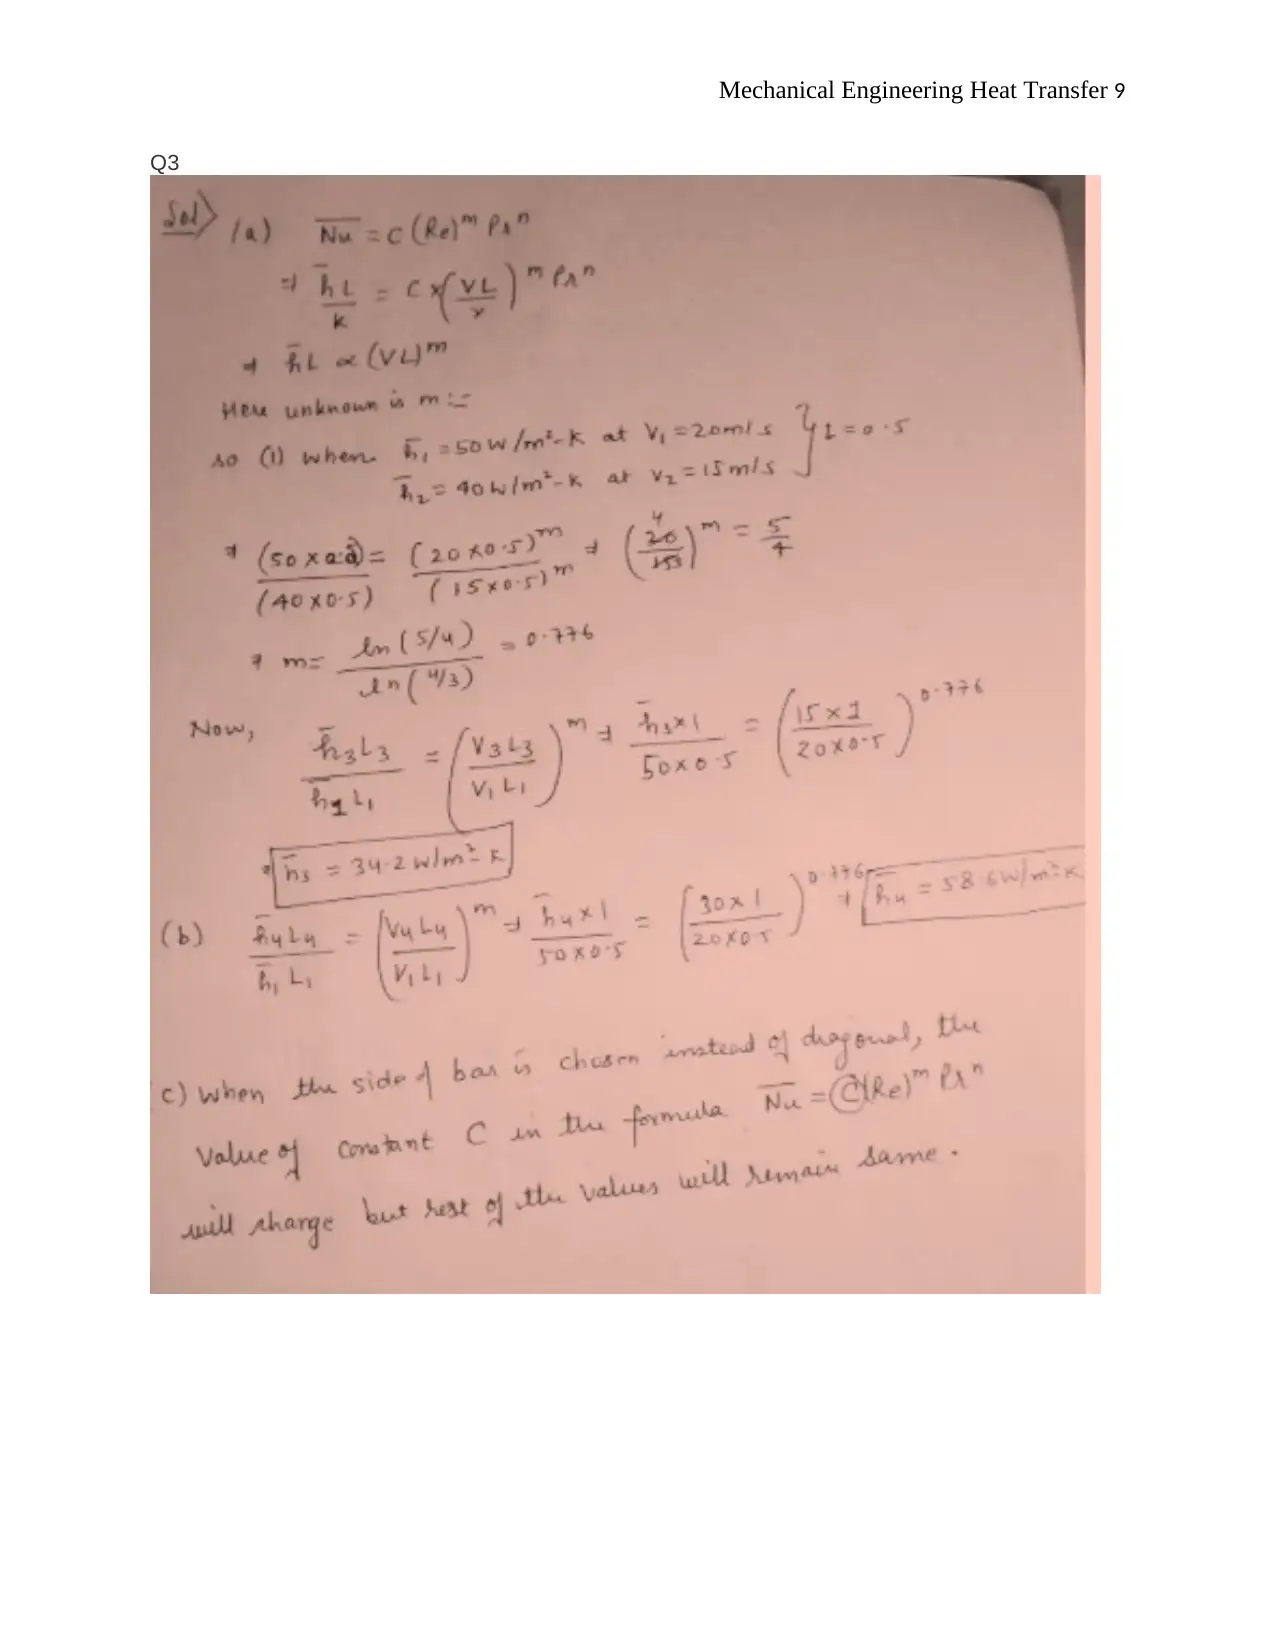 Mechanical Engineering Heat Transfer 9
Q3
Sol> (a) N̅u̅ = C (Re)^m Pr^n
⇒ h̅L/k = C × (VL/ν)^m Pr^n
⇒ h̅L ∝ (VL)^m
Here unknown is m :-
so (1) when h̅₁ = 50 W/m²-K at V₁ = 20 m/s } L = 0.5
h̅₂ = 40 W/m²-K at V₂ = 15 m/s
⇒ (50 × 0.5)/(40 × 0.5) = (20 × 0.5)^m/(15 × 0.5)^m ⇒ (20/15)^m = 5/4
⇒ m = ln(5/4)/ln(4/3) = 0.776
Now, h̅₃L₃/h̅₁L₁ = (V₃L₃/V₁L₁)^m ⇒ h̅₃×1/50×0.5 = (15×1/20×0.5)^0.776
⇒ h̅₃ = 34.2 W/m²-K
(b) h̅₄L₄/h̅₁L₁ = (V₄L₄/V₁L₁)^m ⇒ h̅₄×1/50×0.5 = (30×1/20×0.5)^0.776 ⇒ h̅₄ = 58.6 W/m²-K
c) When the side of bar is chosen instead of diagonal, the
value of constant C in the formula N̅u̅ = C(Re)^m Pr^n
will change but rest of the values will remain same.